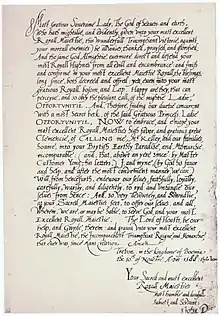 Most gratious Soveraine Lady, The God of heaven and earth,
(Who hath mightilie, and evidently, given unto your most excellent
Royall Maiestie, this wunderfull Triumphant Victorie, against
your mortall enemies) be allwaies, thanked, praysed, and glorified;
And the same God Almightie, evermore direct and defend your
most Royall Highnes from all evill and encumbrance: and finish
and confirme in your most excellent Maiestie Royall, the blessings,
long since, both decreed and offred: yea, even into your most
gratious Royall bosom, and Lap. Happy are they, that can
perceyve, and so obey the pleasant call, of the mightie Ladie,
OPPORTUNITIE. And, Therfore, finding our duetie concurrent
with a most Secret beck, of the said Gratious Princess, Ladie
OPPORTUNITIE, NOW to embrace, and enioye, your
most excellent Royall Maiesties high favor, and gratious great
Clemencie, of CALLING me, Mr Kelley, and our families,
hoame, into your Brytish Earthly Paradise, and Monarchie
incomparable: (and, that, abowt an yere since: by Master
Customer Yong, his letters,) I, and myne, (by God his favor
and help, and after the most convenient manner, we can,)
Will, from hencefurth, endevour our selves, faithfully, loyally,
carefully, warily, and diligently, to ryd and untangle our
selves from hence: And so, very devowtely, and Sowndlie,
at your Sacred Maiesties feet, to offer our selves, and all,
Wherein, we are, or may be hable, to serve God, and your most
Excellent Royall Maiestie. The Lord of Hoasts, be our
help, and Gwyde, therein: and graunt unto your most excellent
Royall Maiestie, the Incomparablest Triumphant Raigne, and Monarchie,
that ever was, since Mans creation. Amen.
Trebon. in the kingdome of Boemia,
the 10th of Novebre: A. Dm: 1588: stylo veteri.
Your Sacred and most excellent
Royall Maiesties
most humble and dutifull
Subiect, and Servant:
John Dee